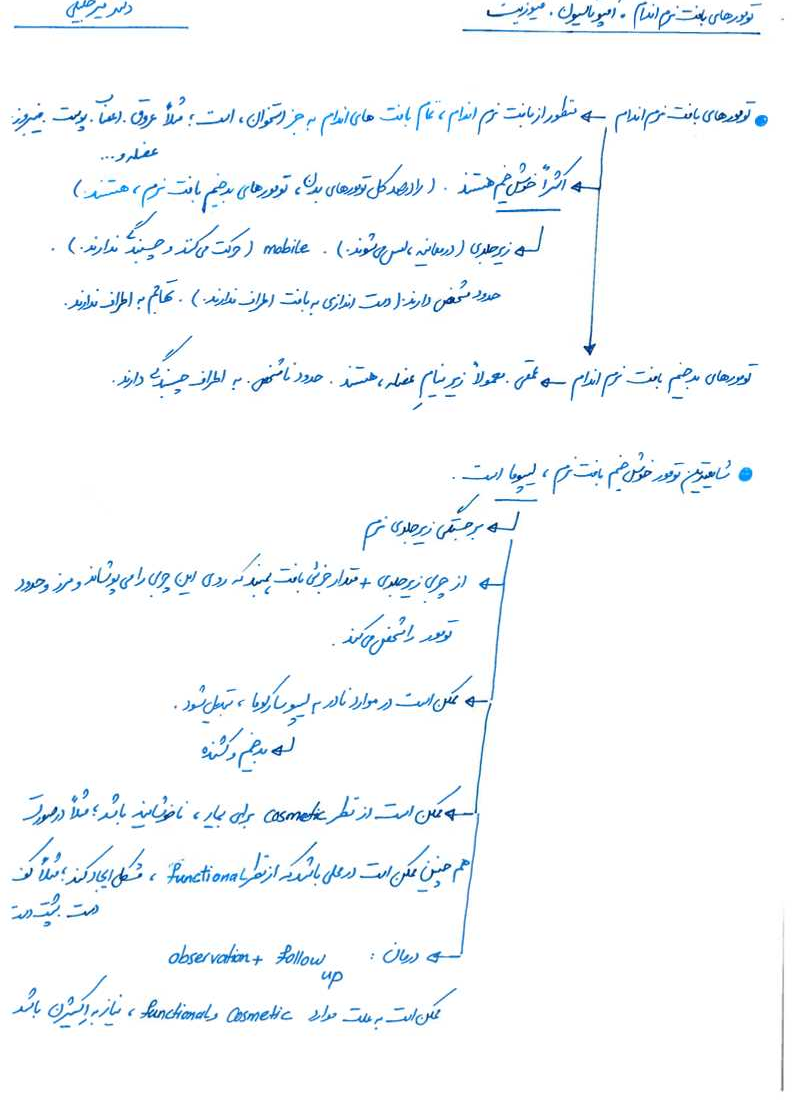 تومورهای بافت نرم اندام . آمپوتاسیون . میوزیت
دکتر میرخلیلی
تومورهای بافت نرم اندام ← منظور از بافت نرم اندام ، تمام بافت های اندام به جز استخوان ، است ؛ مثلاً عروق . اعصاب . پوست .
عضله و...
اکثراً خوش خیم هستند . ( درصد کل تومورهای بدن ، تومورهای بدخیم بافت نرم ، هستند . )
زیرجلدی ( در معاینه ، لمس می‌شوند . ) . mobile ( حرکت می‌کند و چسبندگی ندارند . ) .
حدود مشخص دارند . ( دست اندازی به بافت اطراف ندارند . ) . تهاجم به اطراف ندارند .
تومورهای بدخیم بافت نرم اندام ← عمقی . معمولاً زیر نیام عضله ، هستند . حدود نامشخص . به اطراف چسبندگی دارند .
شایعترین تومور خوش خیم بافت نرم ، لیپوما است .
برجستگی زیرجلدی نرم
از چربی زیرجلدی + مقدار جزئی بافت همبند که روی این چربی را می پوشاند و مرز و حدود
تومور را مشخص می‌کند .
ممکن است در موارد نادر به لیپوسارکوما ، تبدیل شود .
بدخیم و کشنده
ممکن است از نظر cosmetic برای بیمار ، ناخوشایند باشد ؛ مثلاً در صورت
هم چنین ممکن است در محلی باشد که از نظر functional ، مشکل ایجاد کند ؛ مثلاً کف
دست . پشت دست
درمان : observation + follow up
ممکن است به علت موارد cosmetic و functional ، نیاز به اکسیژن باشد